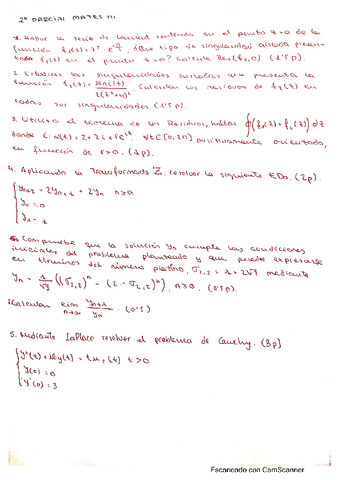 2º PARCIAL MATES III
1. Hallar la serie de Laurent centrada en el punto z=0 de la
función f₁(z) = z² · e
¿Qué tipo de singularidad aislada presen-
tada f₁(z) en el punto z=0? Calcula Res(f₁,0) (1'5p).
2. las singularidades aisladas que presenta la
función f₂(z) = Calcular los residuos de f₂(z) en
todas sus singularidades. (1'5p).
3. Utiliza el teorema de los Residuos, hallar ∮(f₁(z) + f₂(z)) dz
donde C: α(t) = 2+2i+re^{it} ∀t∈[0,2π] positivamente orientada,
en función de r>0. (1p).
4. Aplicando la Transformada Z, resolver la siguiente EDO. (2p).
yₙ₊₂ = 2yₙ₊₁ + 2yₙ n≥0
y₁ = 1
Compruebe que la solución yₙ cumple las condiciones
iniciales del problema planteado y que puede expresarse
en términos del número platino, σ₂,₂ = 1+ mediante
yₙ = ((σ₂,₂)ⁿ - (2-σ₂,₂)ⁿ), n≥0. (0'5p).
Calcular lim n→∞ yₙ₊₁/yₙ. (0'5)
5. Mediante Laplace resolver el problema de Cauchy. (3p)
y(0)=0
y'(0)=3
Escaneado con CamScanner